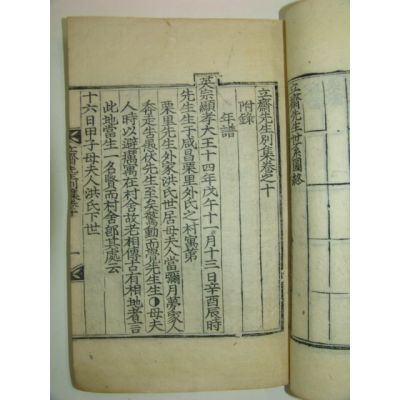 立齋先生世系圖略
立齋先生別集卷之十
附錄
年譜
英宗顯孝大王十四年戊午十一月十三日辛酉辰時
先生生于咸昌栗里外氏之村寓第
栗里先生外家洪氏世居母夫人當彌月夢家人
奔走告愚伏先生至矣驚動而覺先生生母夫
人時以避癘寓在村舍故老相傳古有相地者言
此地當生一名賢而村舍卽其處云
十六日甲子母夫人洪氏下世
立齋先生別集卷十 一